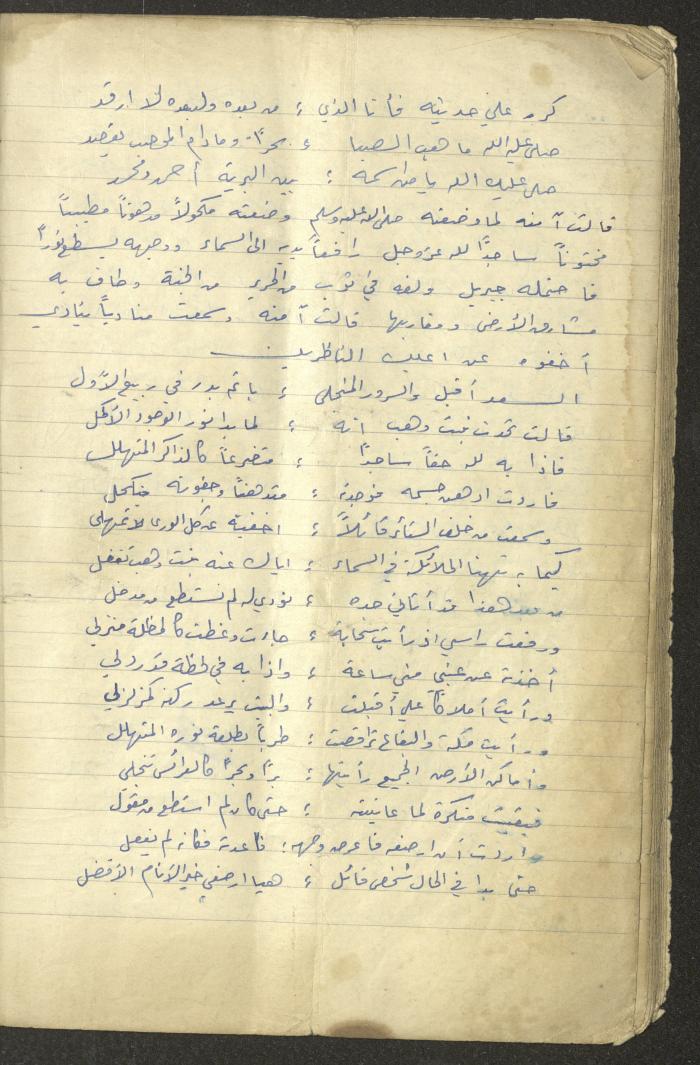 كرر علي حديثه فأنا الذي ؛ من بعده ولبعده لا ارقد
صلى عليه الله ما هب الصبا ؛ سحرًا وما دام
صلى عليك الله يا من اسمه ؛ بين البرية أحمد ومحمد
قالت آمنه لما وضعته صلى الله عليه وسلم وضعته مكحولاً مدهوناً مطيباً
مختوناً ساجدًا لله عز وجل رافعاً يديه الى السماء ووجهه يسطع نورًا
فاحتمله جبريل ولفه في ثوب من الحرير من الجنة وطاف به
مشارق الأرض ومغاربها قالت آمنه وسمعت منادياً ينادي
أخفوه عن اعين الناظرين
السعد أقبل والسرور المنجلي ؛ يا تم بدر في ربيع الأول
قالت تحدث بنت وهب انه ؛ لما بدا نور الوجود الأكمل
فاذا به لله حقاً ساجدًا ؛ متضرعاً كالذاكر المتهلل
فاردت ادهن جسمه فوجدته ؛ متدهناً وجفونه بتكحل
وسمعت من خلف الستائر قائلاً ؛ اخفيه عن كل الورى لا تمهلي
كيما به تهنا الملائكة في السماء ؛ اياك عنه بنت وهب تغفل
من بعد هذا قد أتاني ؛ نودي له لم نستطع من مدخل
ورفعت راسي اذ رأيت سحابة ؛ جاءت وغطت كالمظلة منزلي
أخذته عن عيني مني ساعة ؛ واذا به في لحظة قد رد لي
ورأيت أملاكاً علي أقبلت ؛ والبيت يرعد ركنه كمزلزل
ورأيت مكة والبقاع تراقصت ؛ طرباً بطلعة نوره المتهلل
وأماكن الأرض الجميع رأيتها ؛ برًا وبحرًا كالعرائس تنجلي
فبقيت متكرة لما عاينته ؛ حتى كان لم استطع من مقول
واردت أن ارضعه فاعرض وجهه ؛ فاعدته فكانه لم يفعل
حتى بدا في الحال شخص قائل ؛ هيا ارضعي خير الأنام الأفضل